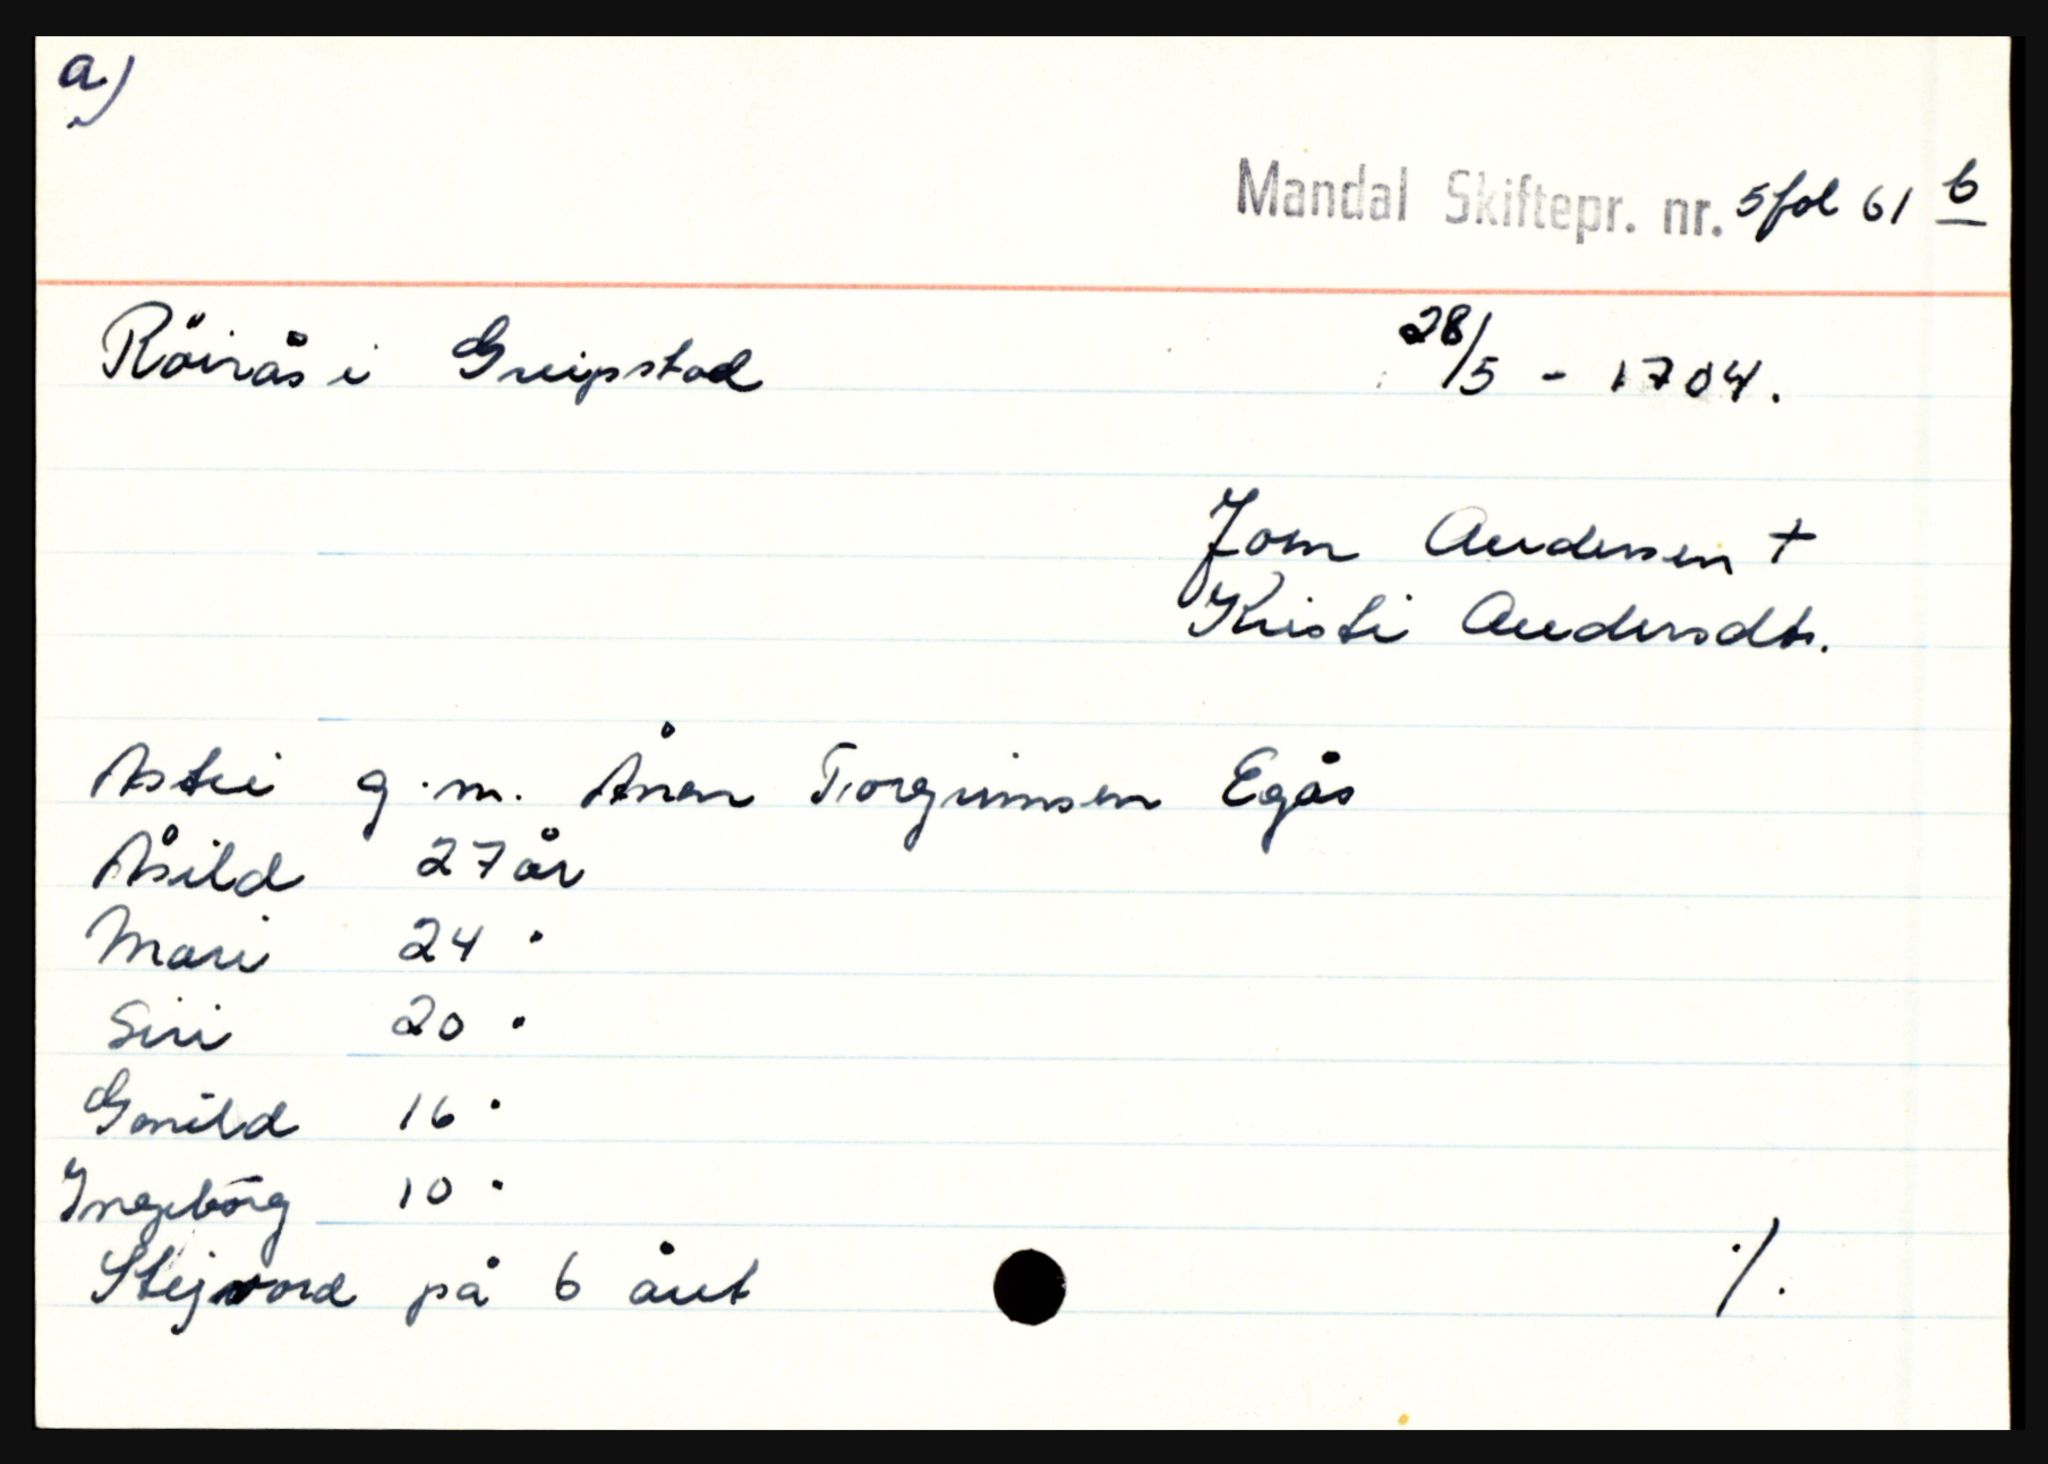 a)
Mandal Skiftepr. nr. 5 fol 61 b
Röirås i Greipstad
28/5 - 1704.
Jom Andersen +
Kristi Andersdtr.
Astri g.m. Ånen Torgrimsen Egås
Åsild 27 år
Mari 24 "
Siri 20 "
Gonild 16 "
Ingeborg 10 "
Stejvord på 6 året
./.